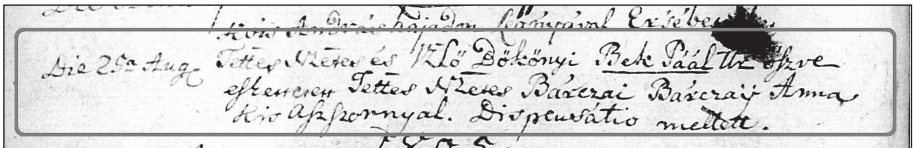 Kós András hajadon leányával Ersébe
Die 25a Aug. Tettes Nzetes és Vzlő Dőkönyi Bek Páál Ur öszve
esketetett Tettes Nzetes Bárczai Bárczaij Anna
Kis Aszszonnyal. Dispensátio mellett.